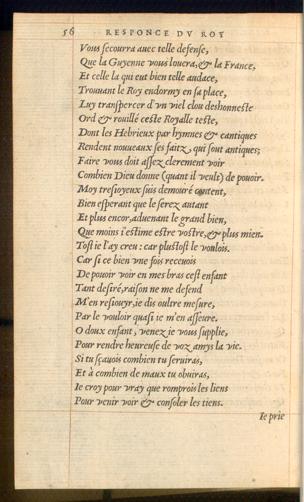 56 RESPONCE DV ROY
Vous secourra auec telle defense,
Que la Guyenne vous louera, & la France,
Et celle la qui eut bien telle audace,
Trouuant le Roy endormy en sa place,
Luy transpercer d'vn viel clou deshonneste
Ord & rouillé ceste Royalle teste,
Dont les Hebrieux par hymnes & cantiques
Rendent nouueaux ses faitz, qui sont antiques;
Faire vous doit assez clerement voir
Combien Dieu donne (quant il veult) de pouoir.
Moy tresioyeux suis demouré content,
Bien esperant que le serez autant
Et plus encor, aduenant le grand bien,
Que moins i'estime estre vostre, & plus mien.
Tost ie l'ay creu: car plustost le voulois.
Car si ce bien vne fois receuois
De pouoir voir en mes bras cest enfant
Tant desiré, raison ne me defend
M'en resiouyr, ie dis oultre mesure,
Par le vouloir quasi ie m'en asseure.
O doux enfant, venez ie vous supplie,
Pour rendre heureuse de voz amys la vie.
Si tu sçauois combien tu seruiras,
Et à combien de maux tu obuiras,
Ie croy pour vray que romprois les liens
Pour venir voir & consoler les tiens.
Ie prie